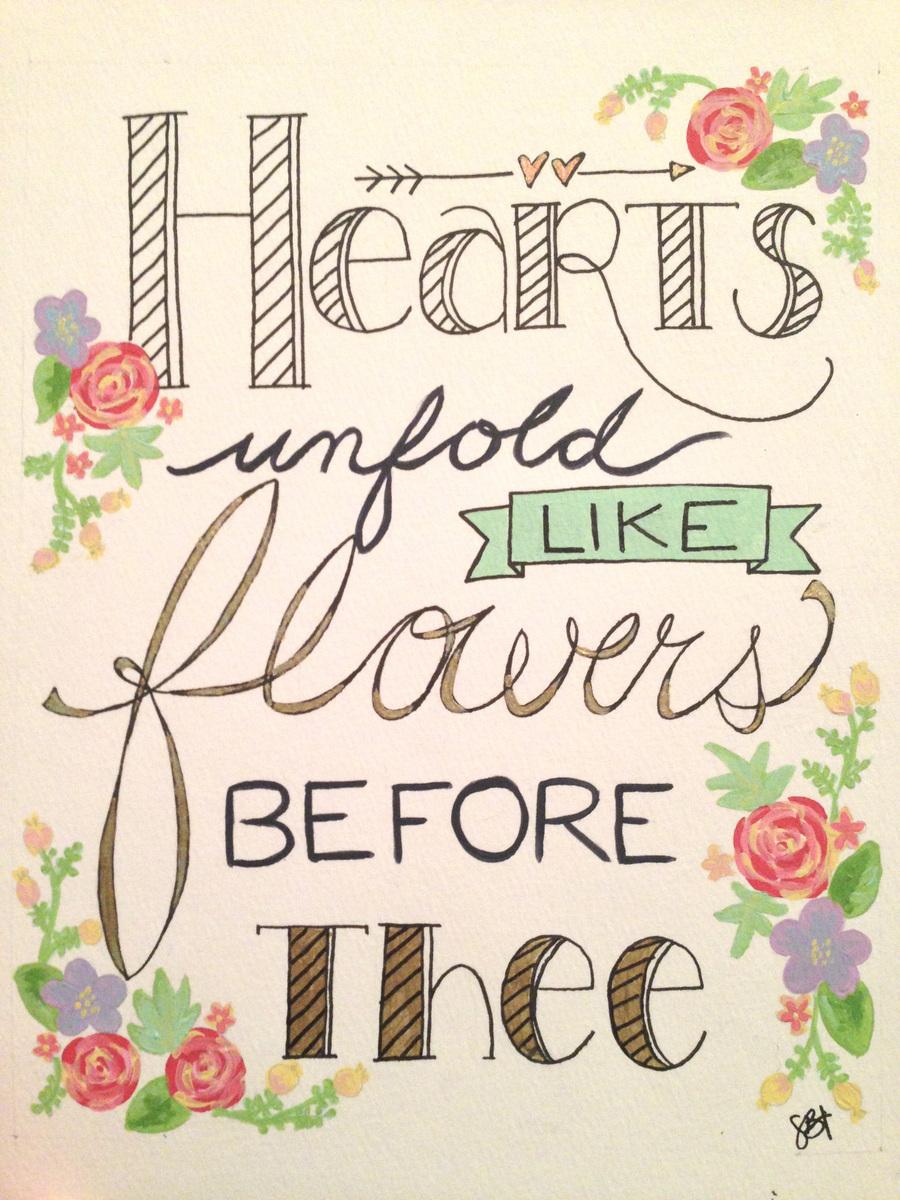 Hearts
unfold
LIKE
flowers
BEFORE
Thee
SBt